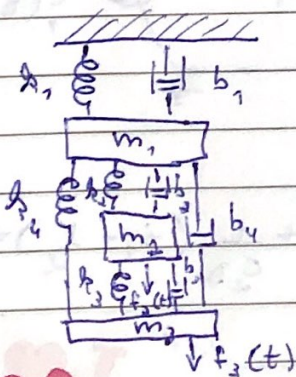 k₁ b₁
m₁
k₂ b₂
k₄ b₄
m₂
k₃ f₂(t) b₃
m₃
f₃(t)